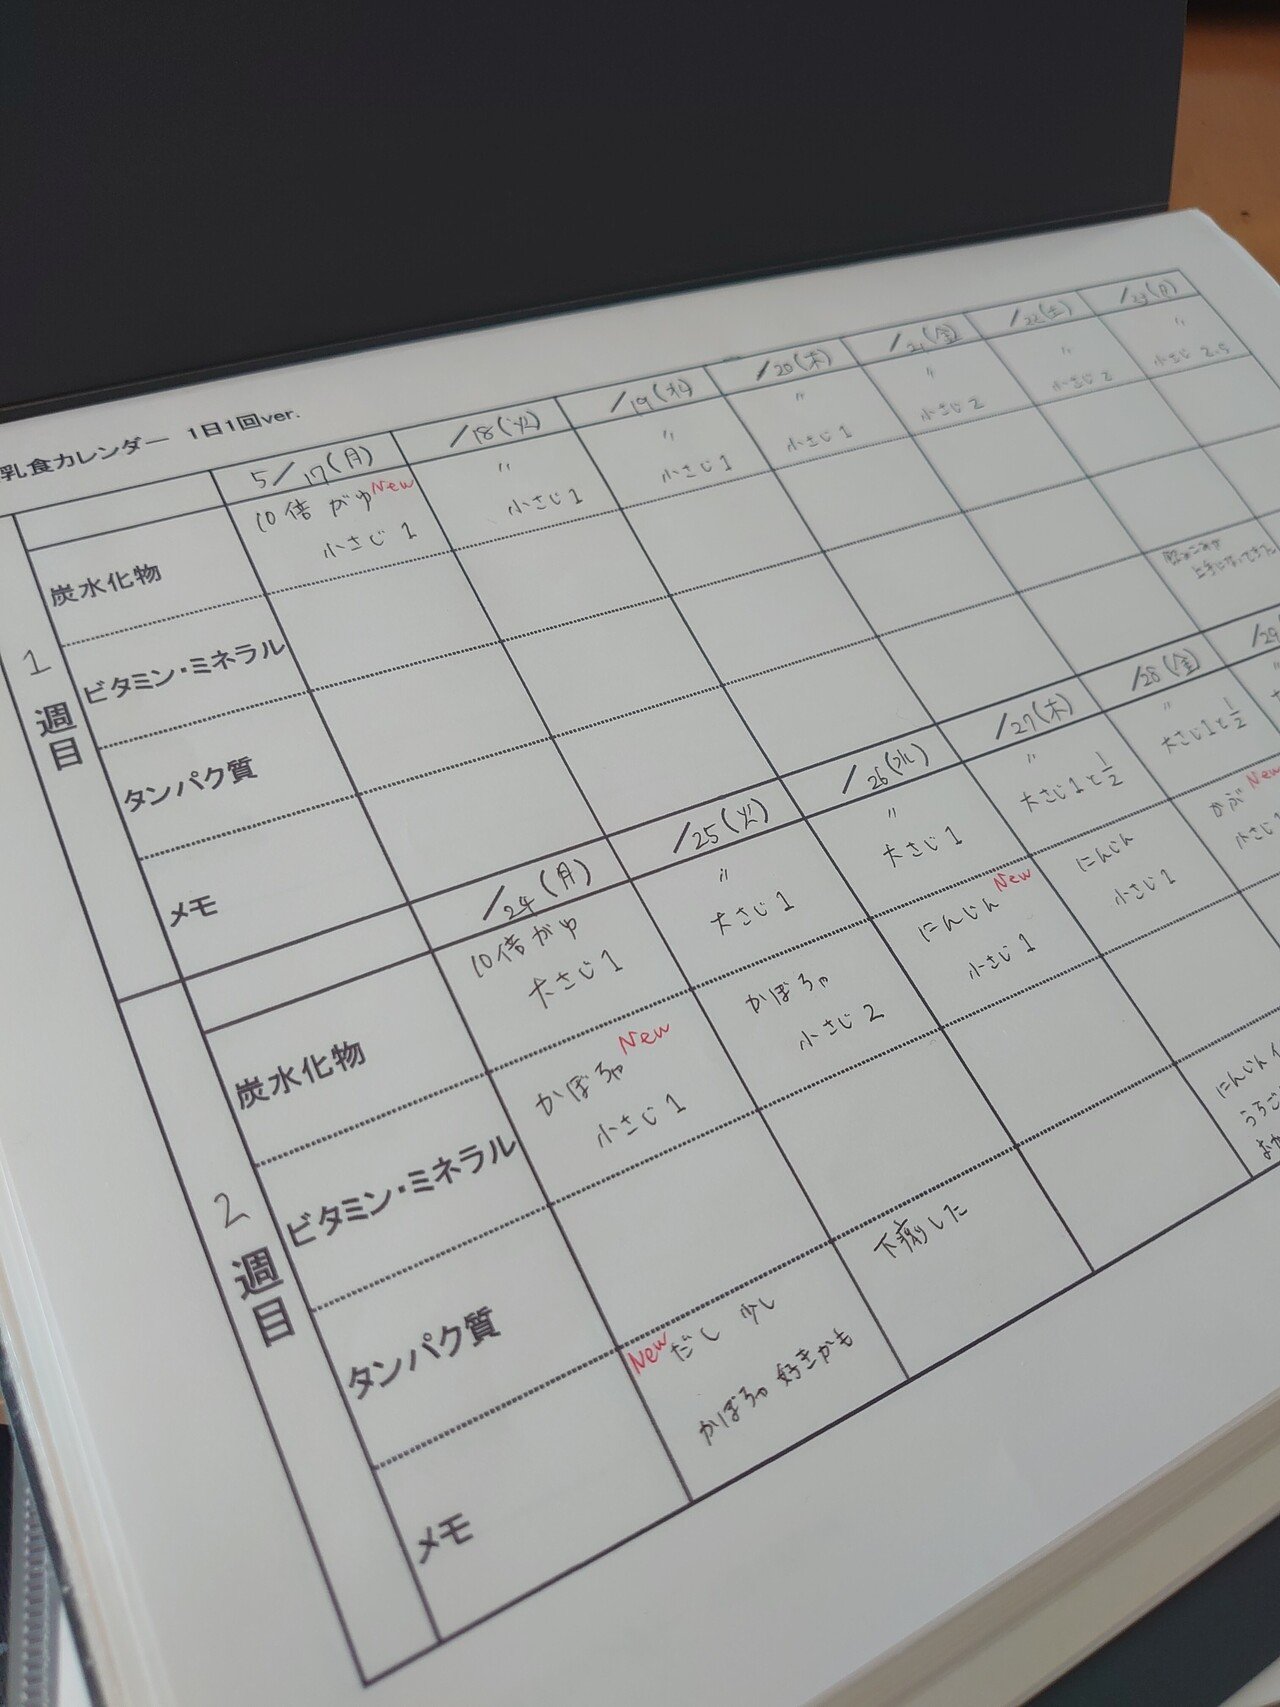 乳食カレンダー 1日1回ver.
5/17(月) /18(火) /19(水) /20(木) /21(金) /22(土) /23(日)
1週目
炭水化物
10倍がゆ New
小さじ1
〃
小さじ1
〃
小さじ1
〃
小さじ1
〃
小さじ2
〃
小さじ2
〃
小さじ2.5
ビタミン・ミネラル
タンパク質
メモ
上手になってきた
/24(月) /25(火) /26(水) /27(木) /28(金) /29
2週目
炭水化物
10倍がゆ
大さじ1
〃
大さじ1
〃
大さじ1
〃
大さじ1と1/2
〃
大さじ1と1/2
〃
ビタミン・ミネラル
かぼちゃ New
小さじ1
かぼちゃ
小さじ2
にんじん New
小さじ1
にんじん
小さじ1
かぶ New
小さじ
タンパク質
メモ
New だし 少し
かぼちゃ 好きかも
下痢した
にんじん